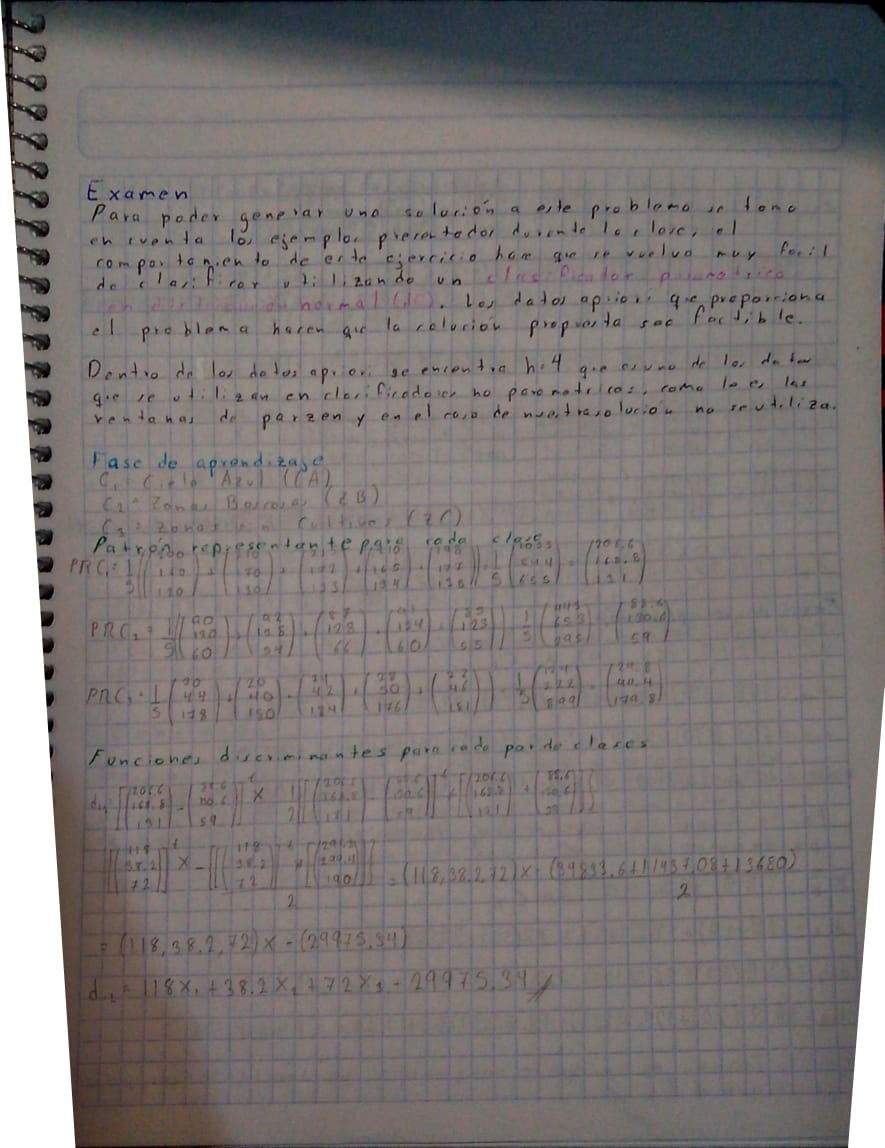 Examen
Para poder generar una solución a este problema se tomo
en cuenta los ejemplos presentados durante la clase, el
comportamiento de este ejercicio hace que se vuelva muy facil
de clasificar utilizando un clasificador parametrico
con distribución normal (dE). Los datos apriori que proporciona
el problema hacen que la solución propuesta sea factible.
Dentro de los datos apriori se encontra h=4 que es uno de los datos
que se utilizan en clasificadores no parametricos, como lo es las
ventanas de parzen y en el caso de nuestra solución no se utiliza.
Fase de aprendizaje
C1 = Cielo Azul (CA)
C2 = Zonas Boscosas (ZB)
C3 = Zonas Cultivos (ZC)
Patrón representante para cada clase
PRC1 = 1/5 = 1/5 = (206.6 168.8 131)
PRC2 = 1/5 [(90 130 60) + (92 128 54) + (88 128 66) + (134 60) + (123 55)] = 1/5 (443 653 295) = (88.6 130.6 59)
PRC3 = 1/5 [(30 44 178) + (20 40 180) + (24 42 184) + (28 50 176) + (22 46 181)] = 1/5 (124 222 899) = (24.8 44.4 179.8)
Funciones discriminantes para cada par de clases
d12 = [(206.6 168.8 131) - (88.6 130.6 59)]t X - 1/2 [[(206.6 168.8 131) - (88.6 130.6 59)]t × [(206.6 168.8 131) + (88.6 130.6 59)]]
[(118 38.2 72)]t X - [[(118 38.2 72)]t × [(295.2 299.4 190)]] / 2 = (118, 38.2, 72) X - (34833.6 + 11437.08 + 13680) / 2
= (118, 38.2, 72) X - (29975.34)
d12 = 118X1 + 38.2X2 + 72X3 - 29975.34